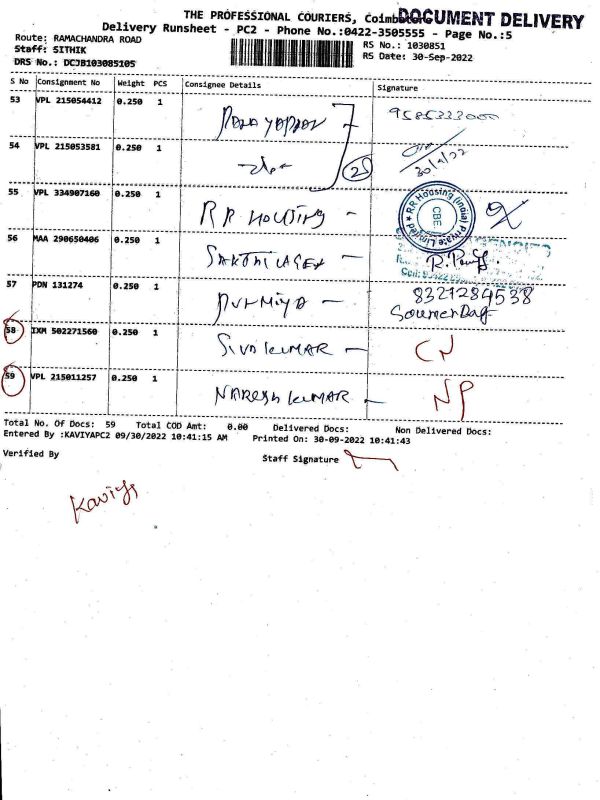 THE PROFESSIONAL COURIERS, Coimbatore
DOCUMENT DELIVERY
Delivery Runsheet - PC2 - Phone No.:0422-3505555 - Page No.:5
Route: RAMACHANDRA ROAD
RS No.: 1030851
Staff: SITHIK
RS Date: 30-Sep-2022
DRS No.: DCJB103085105
S No Consignment No Weight PCS Consignee Details Signature
53 VPL 215054412 0.250 1 9585333000
54 VPL 215053581 0.250 1 25 30/9/22
55 VPL 334907160 0.250 1 RR HOUSING -
RR Housing (India) Private Limited
CBE
56 MAA 290650406 0.250 1
57 PDN 131274 0.250 1 8321284538
58 IXM 502271560 0.250 1 SIVAKUMAR - CN
59 VPL 215011257 0.250 1 NARESH KUMAR - NP
Total No. Of Docs: 59 Total COD Amt: 0.00 Delivered Docs: Non Delivered Docs:
Entered By :KAVIYAPC2 09/30/2022 10:41:15 AM Printed On: 30-09-2022 10:41:43
Verified By Staff Signature
Kaviya